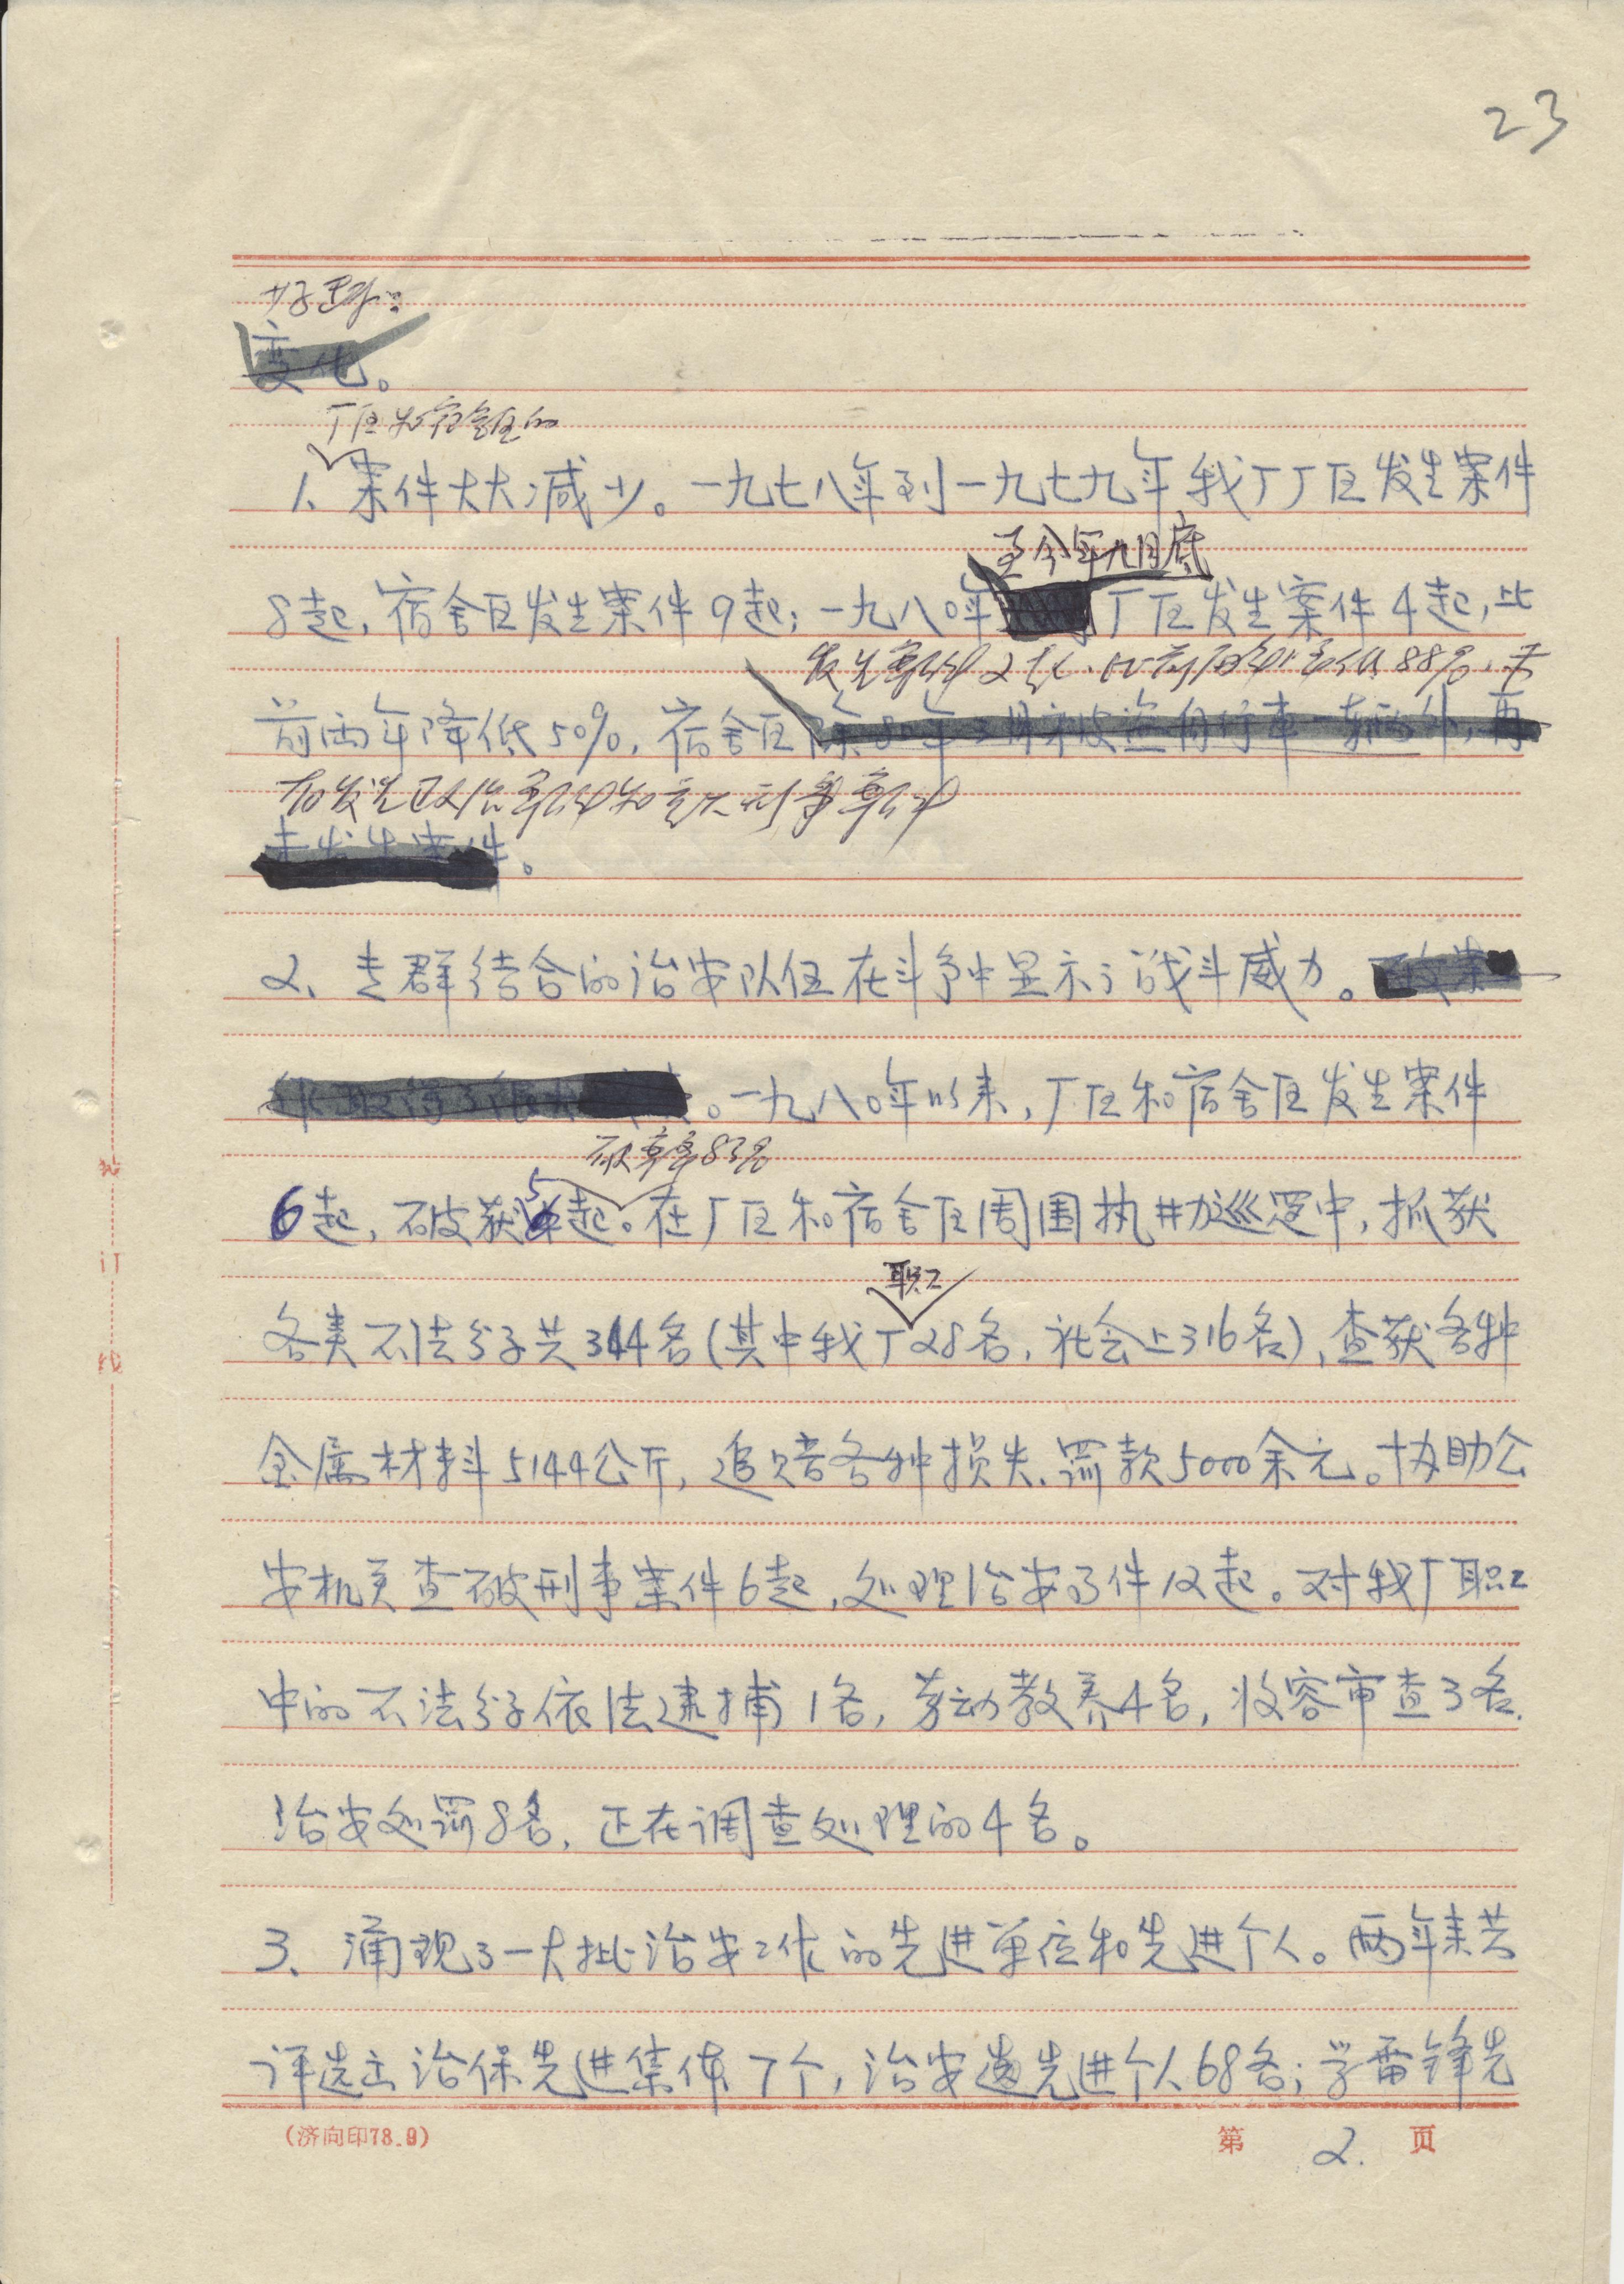 23
好转:
变化。
厂区和宿舍区的
1、案件大大减少。一九七八年到一九七九年我厂厂区发生案件
至今年九月底
8起,宿舍区发生案件9起;一九八〇年厂区发生案件4起,比
发生案件2起、比前两年降低88%,未
前两年降低50%,宿舍区除80年3月末被盗自行车一辆外,再
有发生政治案件和重大刑事案件
未发生案件。
2、专群结合的治安队伍在斗争中显示了战斗威力。破案
。一九八〇年以来,厂区和宿舍区发生案件
破案率83%
5
6起,破获起。在厂区和宿舍区周围执勤巡逻中,抓获
职工
各类不法分子共344名(其中我厂28名,社会上316名),查获各种
金属材料5144公斤,追赔各种损失、罚款5000余元。协助公
安机关查破刑事案件6起,处理治安事件12起。对我厂职工
中的不法分子依法逮捕1名,劳动教养4名,收容审查3名.
治安处罚8名,正在调查处理的4名。
3、涌现了一大批治安工作的先进单位和先进个人。两年来共
评选出治保先进集体7个,治安先进个人68名;学雷锋先
装
订
线
(济向印78.9)
第 2. 页